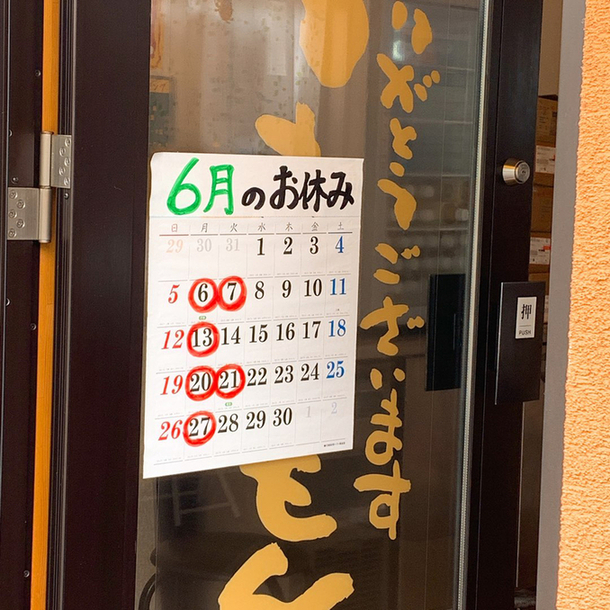 6月のお休み
日 月 火 水 木 金 土
29 30 31 1 2 3 4
5 6 7 8 9 10 11
12 13 14 15 16 17 18
19 20 21 22 23 24 25
26 27 28 29 30 1 2
りがとうございます
押
PUSH